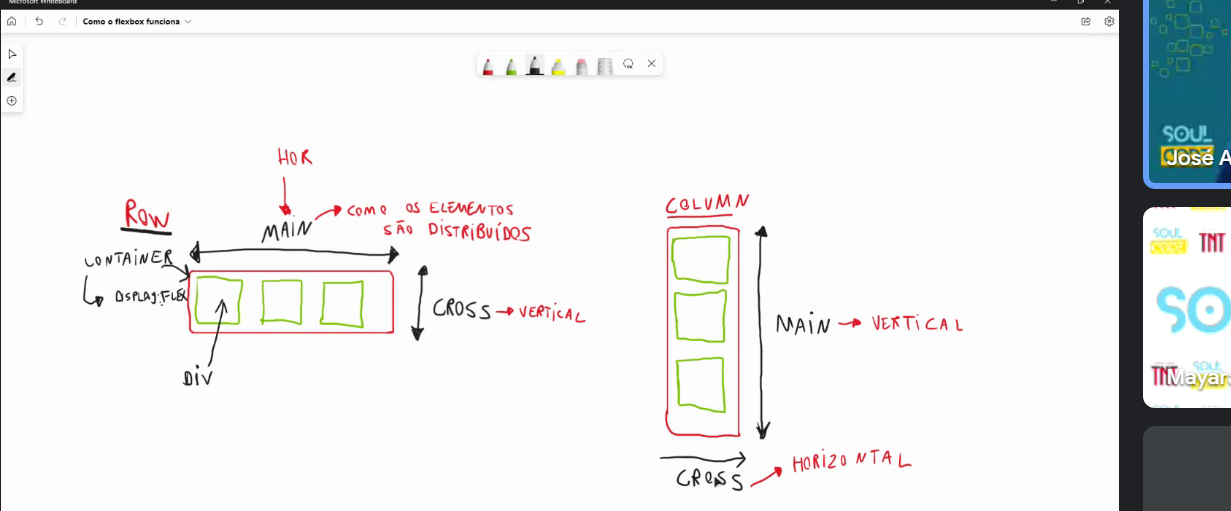 Microsoft Whiteboard
Como o flexbox funciona
HOR
ROW
MAIN
COMO OS ELEMENTOS
SÃO DISTRIBUÍDOS
CONTAINER
DISPLAY:FLEX
CROSS
VERTICAL
DIV
COLUMN
MAIN
VERTICAL
CROSS
HORIZONTAL
SOUL
CODE
José A
SOUL
CODE
TNT
SO
TNT
SOUL
Mayar